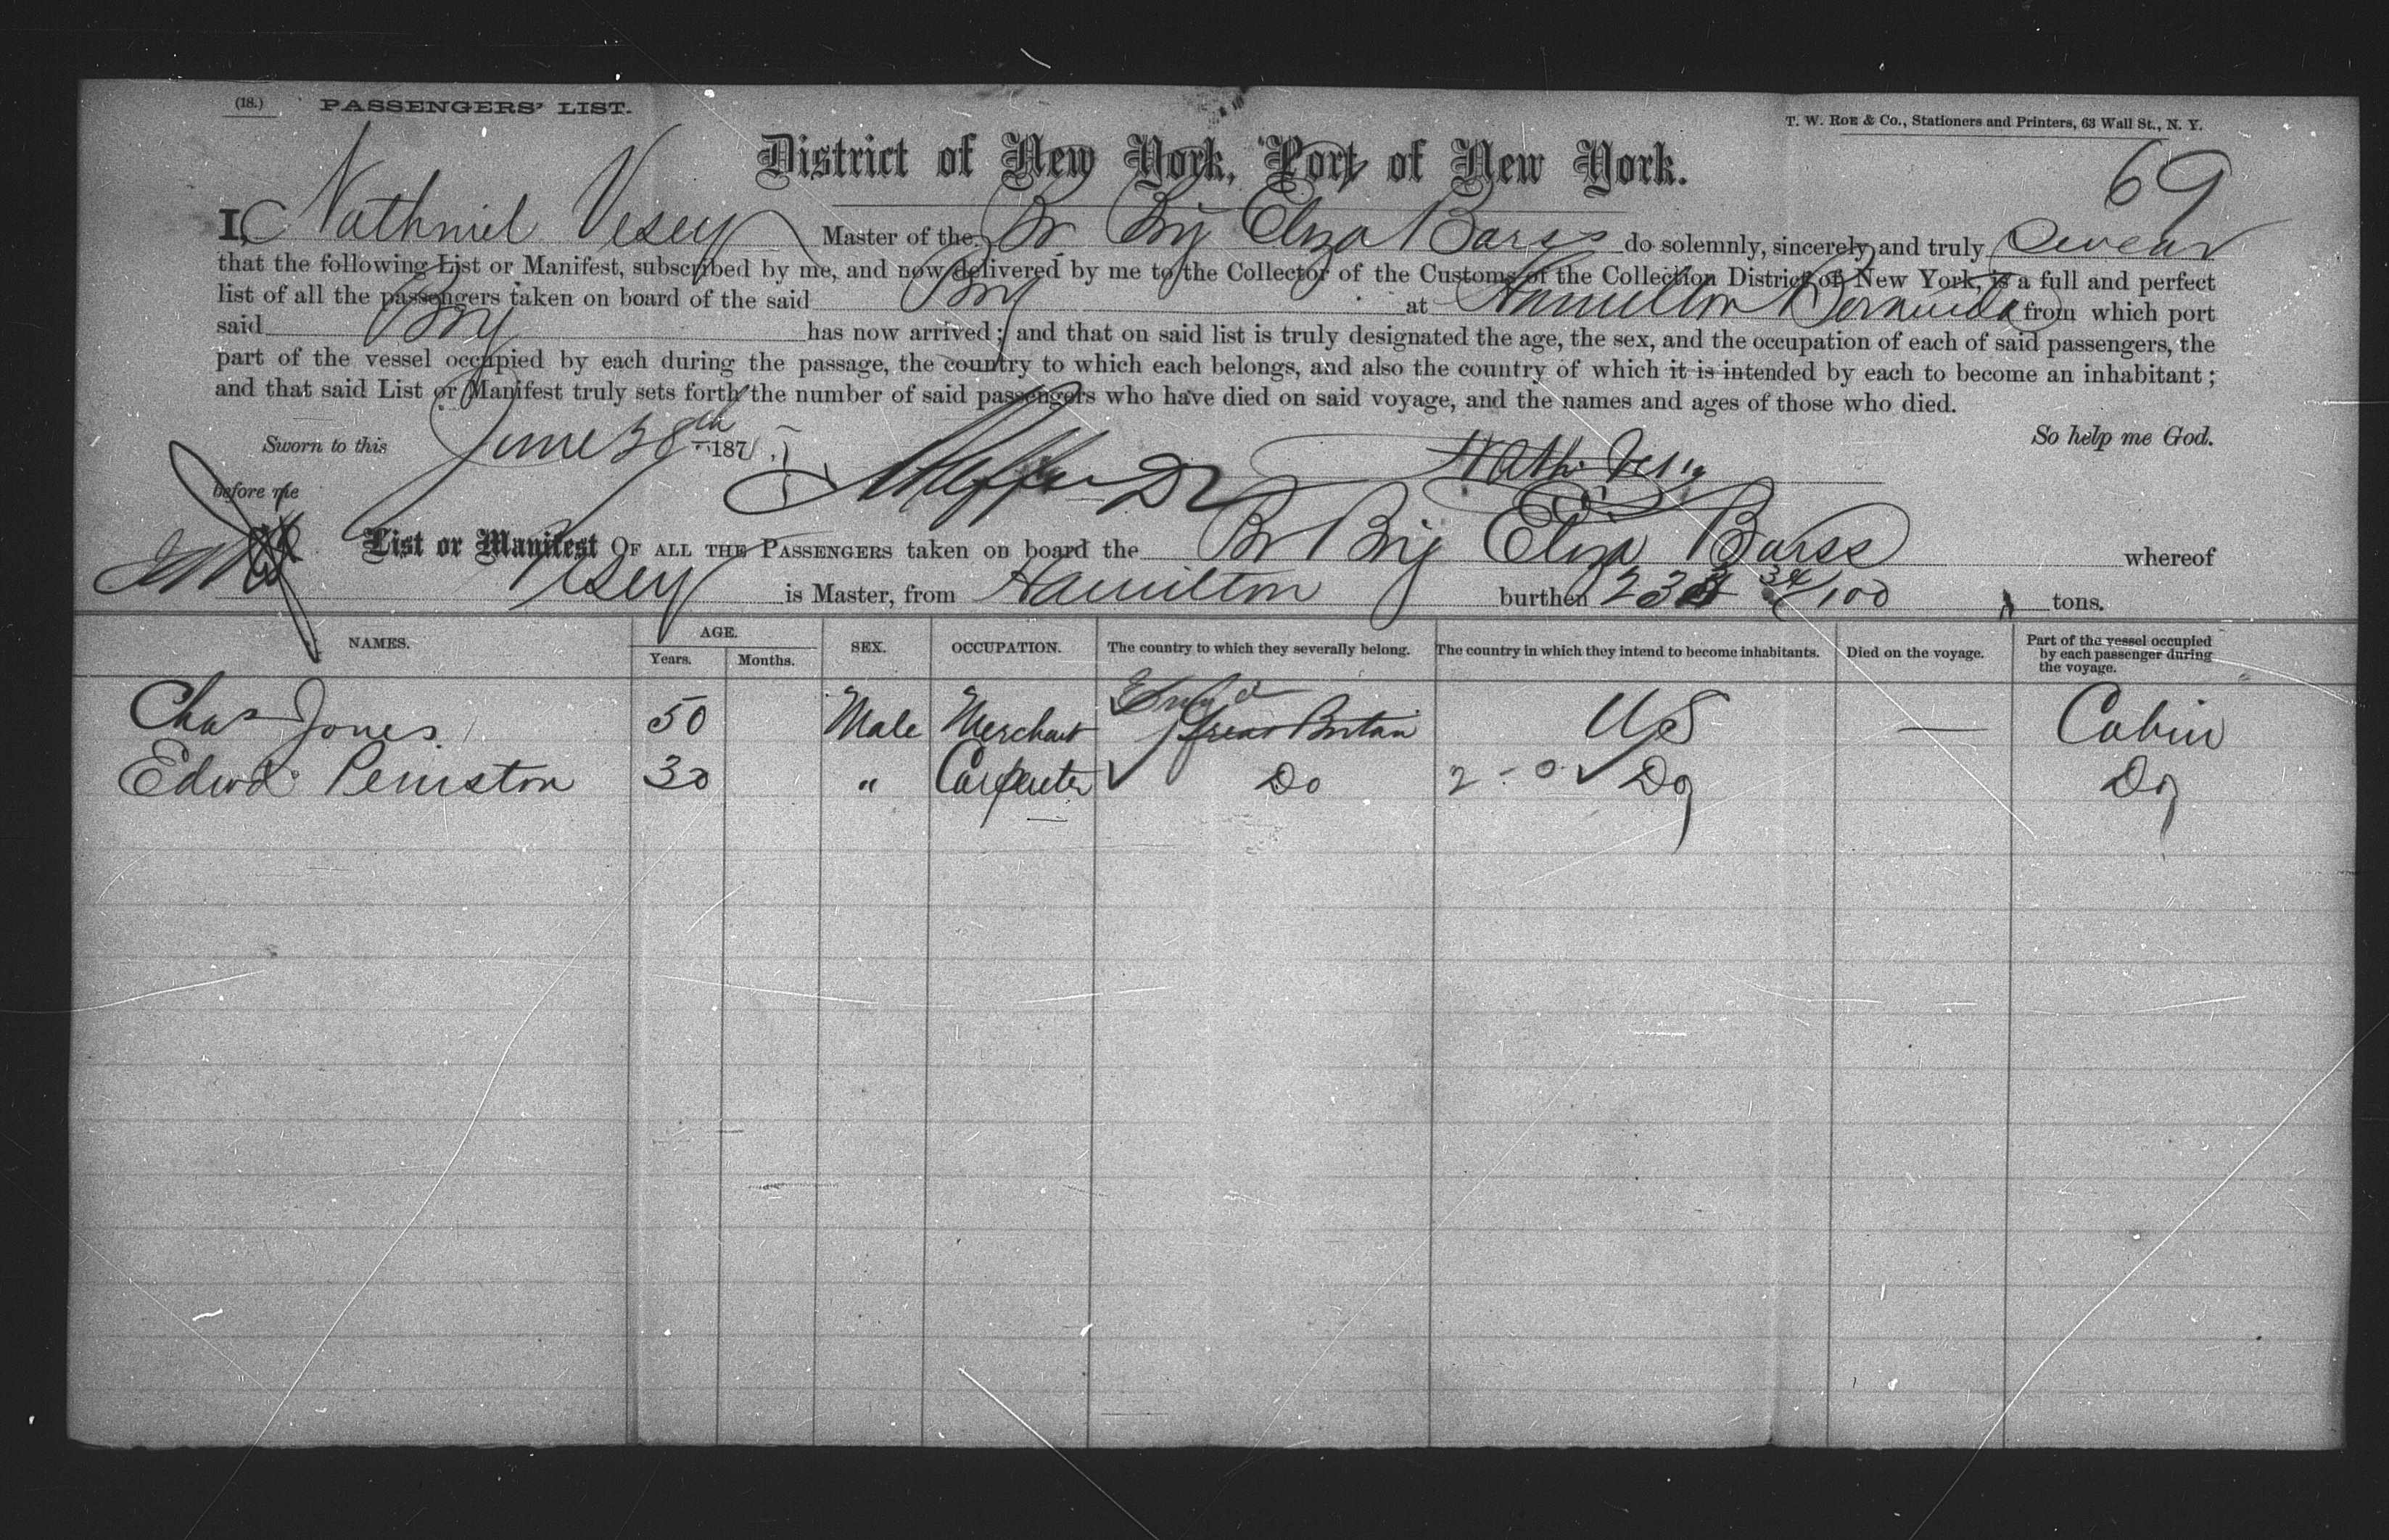 (18.) PASSENGERS' LIST.
T. W. ROE & Co., Stationers and Printers, 63 Wall St., N. Y.
District of New York, Port of New York.
69
I, Nathniel Vesey Master of the Br Brig Eliza Barss do solemnly, sincerely and truly Swear
that the following List or Manifest, subscribed by me, and now delivered by me to the Collector of the Customs of the Collection District of New York, is a full and perfect
list of all the passengers taken on board of the said Brig at Hamilton Bermuda from which port
said Brig has now arrived; and that on said list is truly designated the age, the sex, and the occupation of each of said passengers, the
part of the vessel occupied by each during the passage, the country to which each belongs, and also the country of which it is intended by each to become an inhabitant;
and that said List or Manifest truly sets forth the number of said passengers who have died on said voyage, and the names and ages of those who died.
Sworn to this June 28th 187 So help me God.
Nath. Vesey
before me
List or Manifest OF ALL THE PASSENGERS taken on board the Br Brig Eliza Barss whereof
Vesey is Master, from Hamilton burthen 233 34/100 tons.
NAMES. AGE. Years. Months. SEX. OCCUPATION. The country to which they severally belong. The country in which they intend to become inhabitants. Died on the voyage. Part of the vessel occupied by each passenger during the voyage.
Chas Jones 50 Male Merchant Great Britain US — Cabin
Edwd Peniston 30 " Carpenter Do Do Do